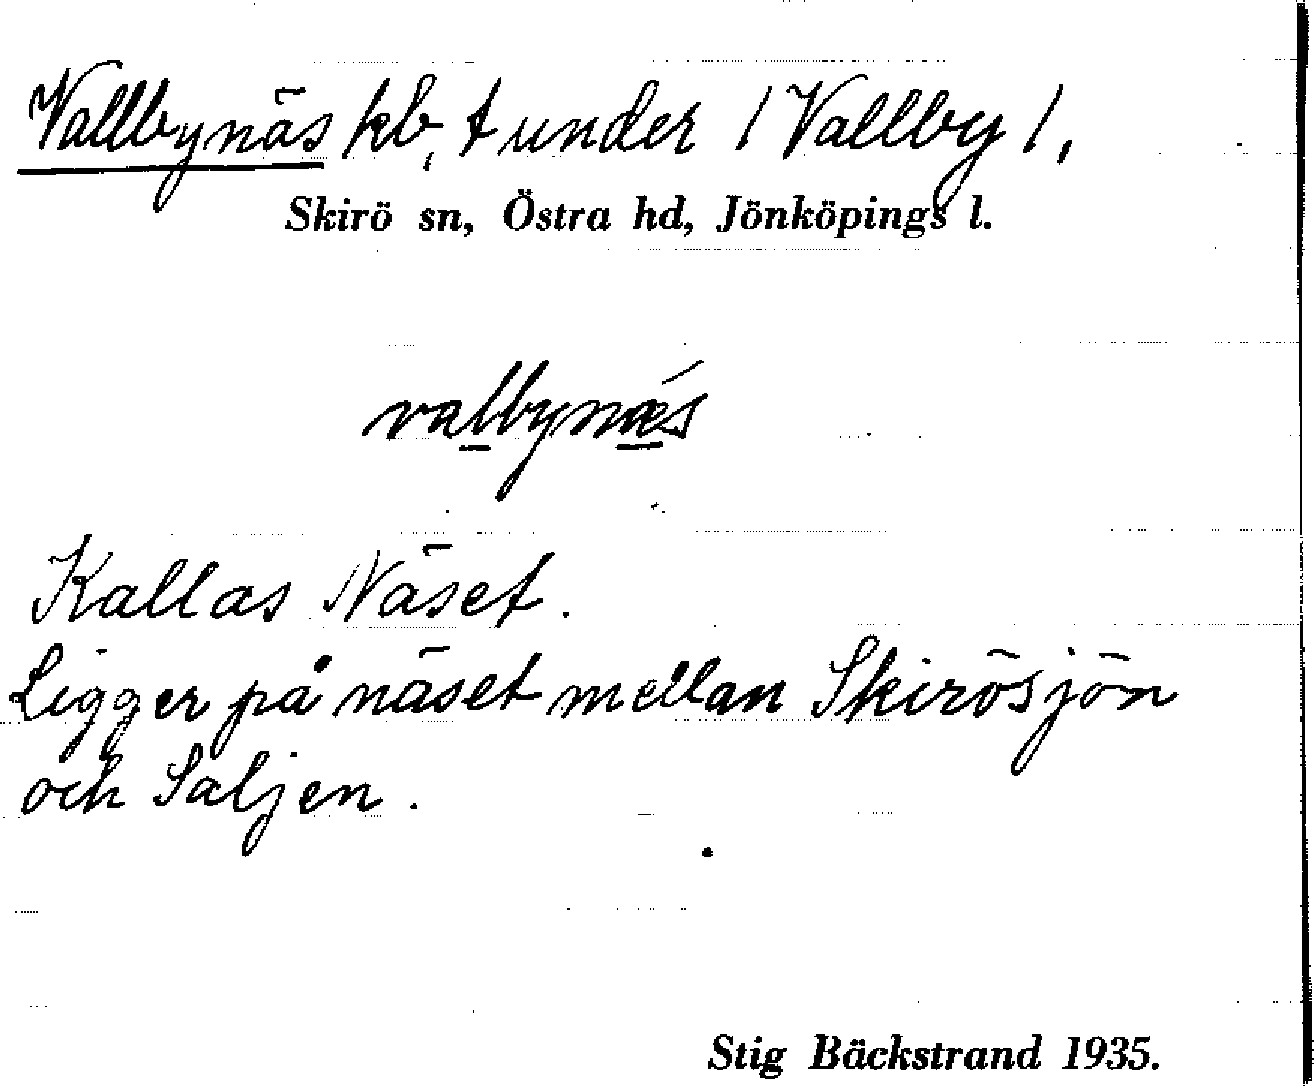 Vallbynäs kb, t under / Vallby /,
Skirö sn, Östra hd, Jönköpings l.
valbynǽs
Kallas Näset.
Ligger på näset mellan Skirösjön
och Saljen.
Stig Bäckstrand 1935.